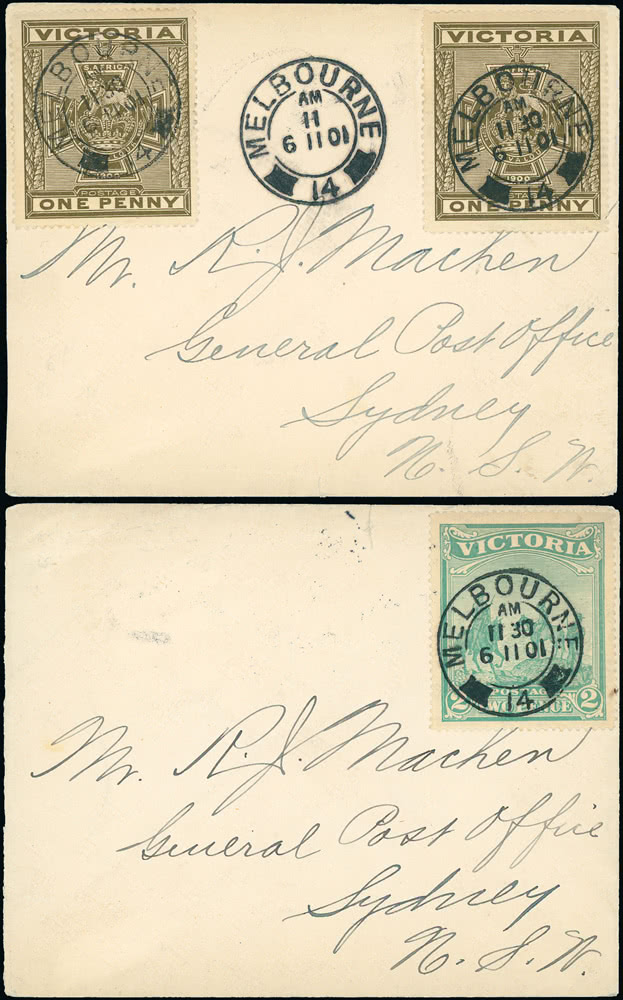 VICTORIA
S. AFRICA
MELBOURNE
POSTAGE
ONE PENNY
MELBOURNE
AM
11
6 11 01
14
VICTORIA
MELBOURNE
AM
11 30
6 11 01
14
1900
ONE PENNY
Mr. R. J. Machen
General Post Office
Sydney
N. S. W.
VICTORIA
MELBOURNE
AM
11 30
6 11 01
14
2 2
Mr. R. J. Machen
General Post Office
Sydney
N. S. W.